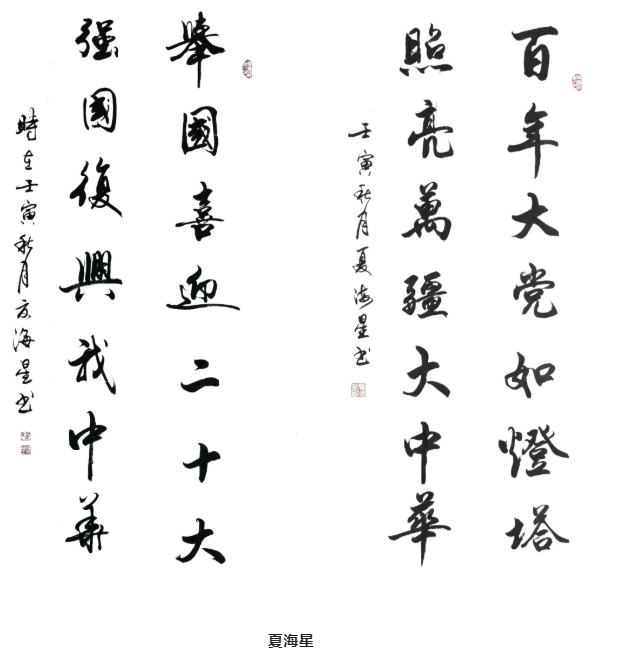 百年大党如燈塔
照亮萬疆大中華
壬寅秋月夏海星书
舉國喜迎二十大
强國復興我中華
時在壬寅秋月夏海星书
夏海星